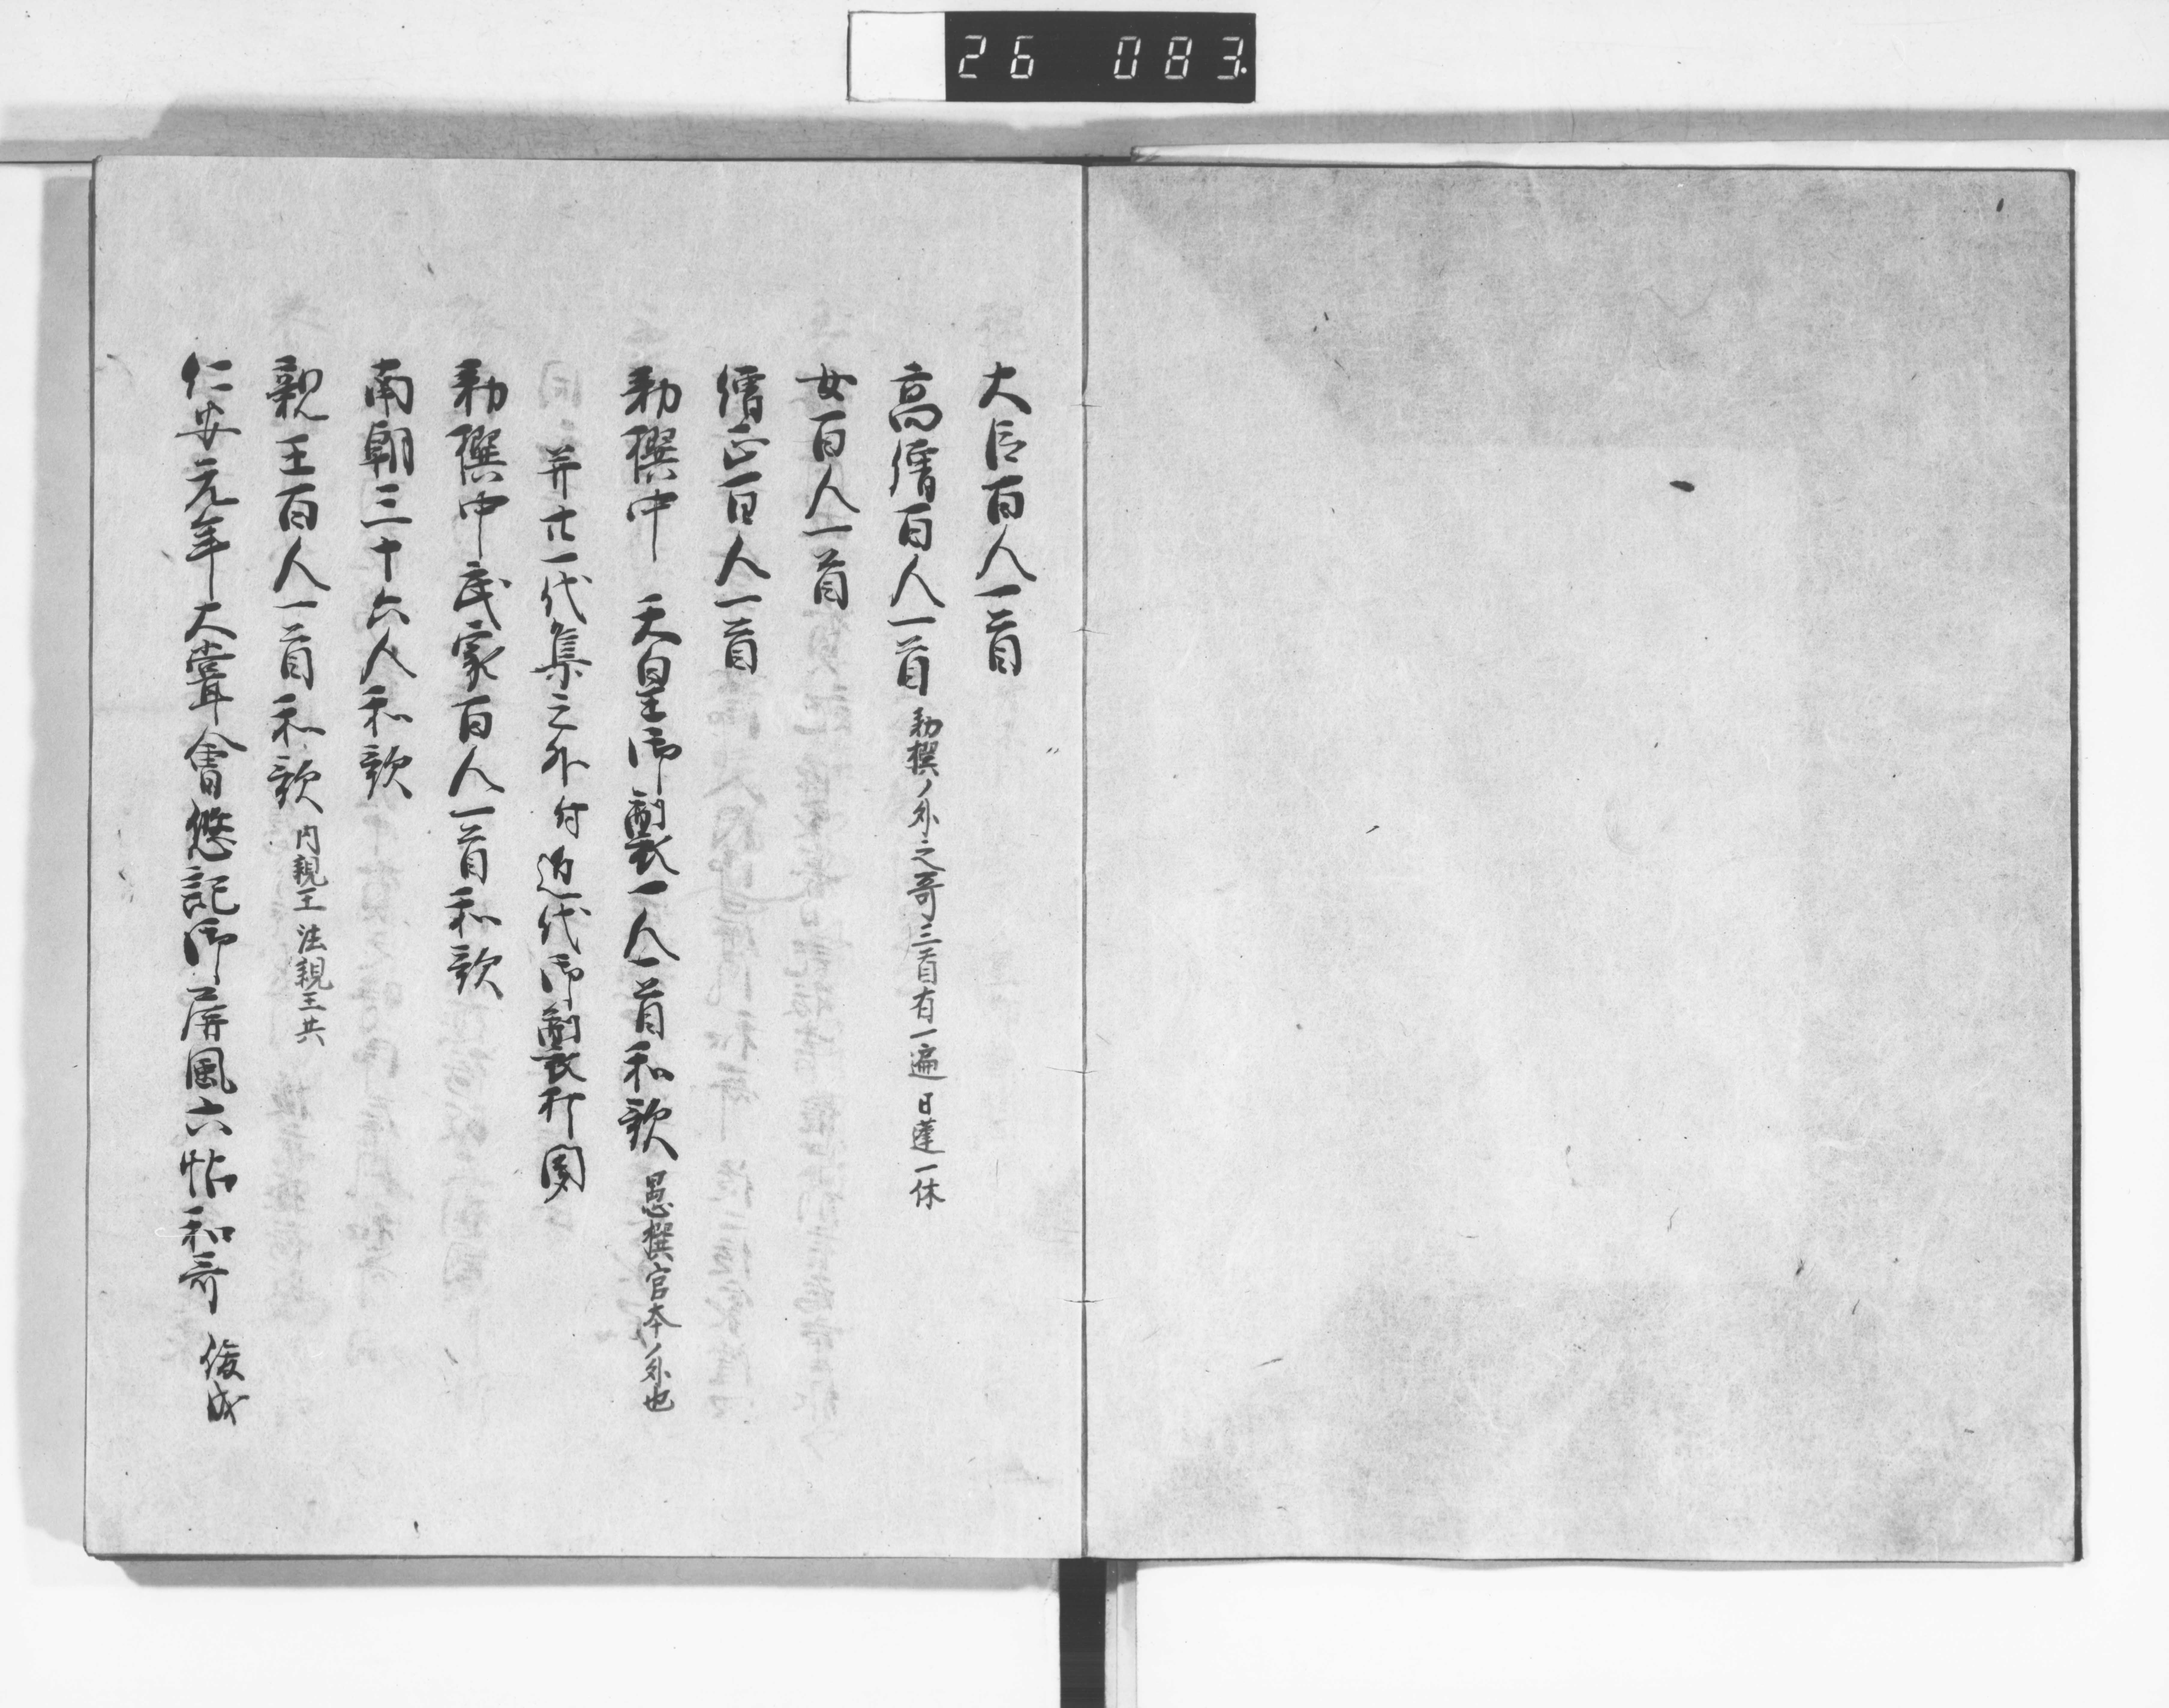 26 083.
大臣百人一首
高僧百人一首 勅撰ノ外之哥三首有一遍 日蓮 一休
女百人一首
僧正百人一首
勅撰中 天皇御製一人一首和歌 愚撰官本ノ外也
并廿一代集之外付近代御製打聞
勅撰中武家百人一首和歌
南朝三十六人和歌
親王百人一首和歌 内親王 法親王共
仁安元年大嘗會悠記御屏風六帖和哥 俊成